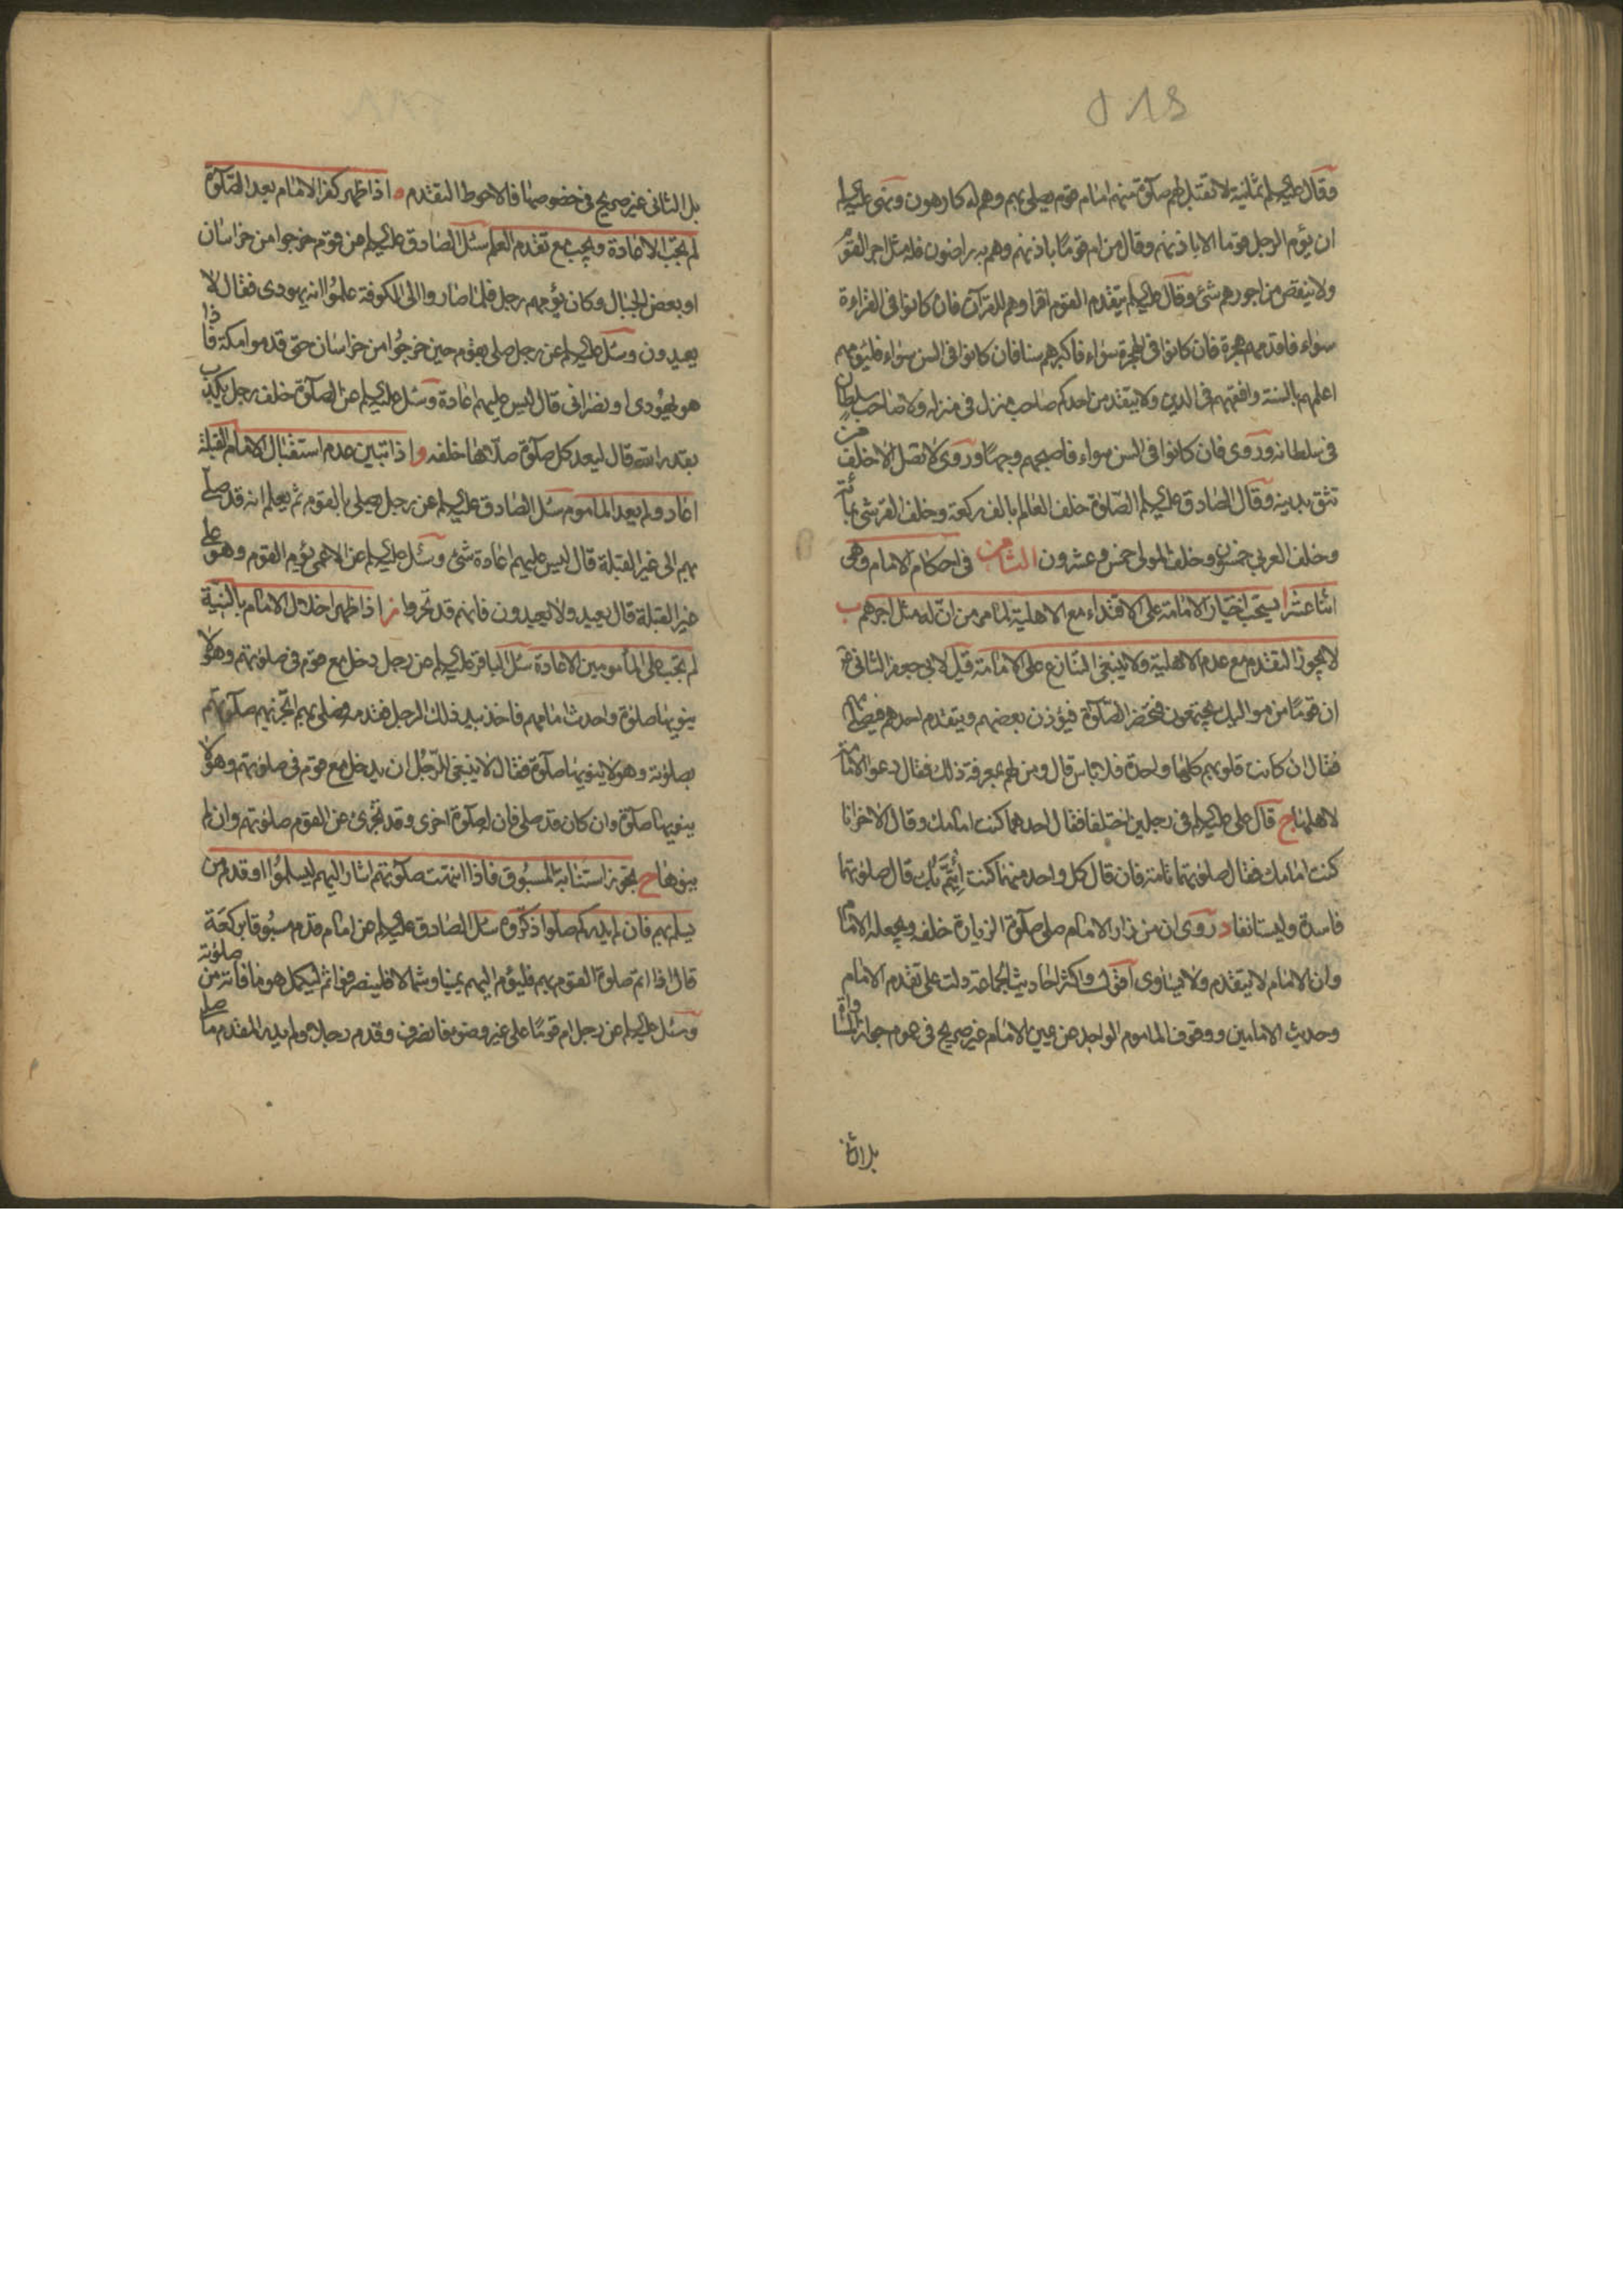 وقال عليه السلام ثمانية لا تقبل لهم صلوة منهم امام قوم يصلى بهم وهم له كارهون ونهى عليه السلام
ان يؤم الرجل قوما الا باذنهم وقال من ام قوما باذنهم وهم به راضون فله مثل اجر القوم
ولا ينقص من اجورهم شئ وقال عليه السلام يتقدم القوم اقراوهم للقرآن فان كانوا فى القراءة
سواء فاقدمهم هجرة فان كانوا فى الهجرة سواء فاكبرهم سنا فان كانوا فى السن سواء فليؤمهم
اعلمهم بالسنة وافقههم فى الدين ولا يتقدمن احدكم صاحب منزل فى منزله ولا صاحب سلطان
فى سلطانه وروى فان كانوا فى السن سواء فاصبحهم وجها وروى لا تصل الا خلف من
تثق بدينه وقال الصادق عليه السلام الصلوة خلف العالم بالف ركعة وخلف القرشى بمائة
وخلف العربي خمسون وخلف المولى خمس وعشرون الثامن فى احكام الامام وهى
اثنا عشر ا يستحب اختيار الامامة على الاقتداء مع الاهلية لما مر من ان له مثل اجرهم ب
لا يجوز التقدم مع عدم الاهلية ولا ينبغى التنازع على الامامة قيل لابي جعفر الثانى
ان قوما من مواليك يجتمعون فتحضر الصلوة فيؤذن بعضهم ويتقدم احدهم فيصلى بهم
فقال ان كانت قلوبهم كلها واحدة فلا باس قال ومن لهم بمعرفة ذلك فقال دعوا الامامة
لاهلها ج قال على عليه السلام فى رجلين اختلفا فقال احدهما كنت امامك وقال الاخر انا
كنت امامك فقال صلوتهما تامة فان قال كل واحد منهما كنت ائتم بك قال صلوتهما
فاسدة وليستانفا د روى ان من زار الامام صلى صلوة الزيارة خلفه ويجعله الامام
وان الامام لا يتقدم ولا يساوى اقول واكثر احاديث الجماعة دلت على تقدم الامام
وحديث الامامين ووقوف الماموم الواحد عن يمين الامام غير صريح فى عموم جواز المساواة
بل الثانى
بل الثانى غير صريح فى خصوصها فالاحوط التقدم ه اذا ظهر كفر الامام بعد الصلوة
لم تجب الاعادة ويجب مع تقدم العلم سئل الصادق عليه السلام عن قوم خرجوا من خراسان
او بعض الجبال وكان يؤمهم رجل فلما صاروا الى الكوفة علموا انه يهودى فقال لا
يعيدون وسئل عليه السلام عن رجل صلى بقوم حين خرجوا من خراسان حتى قدموا مكة فاذا
هو يهودى او نصرانى قال ليس عليهم اعادة وسئل عليه السلام عن الصلوة خلف رجل يكذب
بقدر الله قال ليعد كل صلوة صلاها خلفه و اذا تبين عدم استقبال الامام القبلة
اعاد ولم يعد الماموم سئل الصادق عليه السلام عن رجل يصلى بالقوم ثم يعلم انه قد صلى
بهم الى غير القبلة قال ليس عليهم اعادة شئ وسئل عليه السلام عن الاعمى يؤم القوم وهو على
غير القبلة قال يعيد ولا يعيدون فانهم قد تحروا ز اذا ظهر اخلال الامام بالنية
لم تجب على المأمومين الاعادة سئل الباقر عليه السلام عن رجل دخل مع قوم فى صلوتهم وهو لا
ينويها صلوة واحدث امامهم فاخذ بيد ذلك الرجل فقدمه فصلى بهم اتجزيهم صلوتهم
بصلوته وهو لا ينويها صلوة فقال لا ينبغى للرجل ان يدخل مع قوم فى صلوتهم وهو لا
ينويها صلوة وان كان قد صلى فان له صلوة اخرى وقد تجزى عن القوم صلوتهم وان لم
ينوها ح تجوز استنابة المسبوق فاذا انتهت صلوتهم اشار اليهم ليسلموا او قدم من
يسلم بهم فان لم يدر كم صلوا ذكروه سئل الصادق عليه السلام عن امام قدم مسبوقا بركعة
قال اذا اتم صلوة القوم بهم فليؤم اليهم يمينا وشمالا فلينصرفوا ثم ليكمل هو ما فاته من صلوته
وسئل عليه السلام عن رجل ام قوما على غير وضوء فانصرف وقدم رجلا ولم يدر المقدم ما صلى